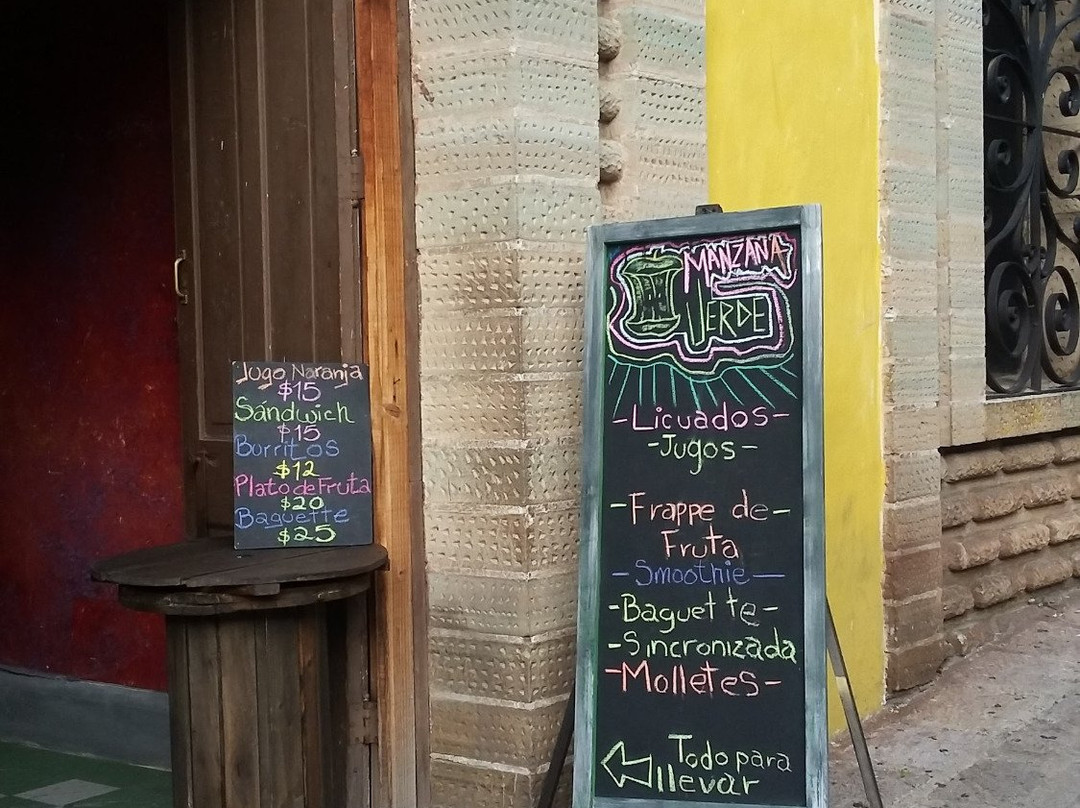 Jugo Naranja
$15
Sándwich
$15
Burritos
$12
Plato de Fruta
$20
Baguette
$25
MANZANA
VERDE
-Licuados-
-Jugos-
-Frappe de-
Fruta
-Smoothie-
-Baguette-
-Sincronizada
-Molletes-
Todo para
llevar